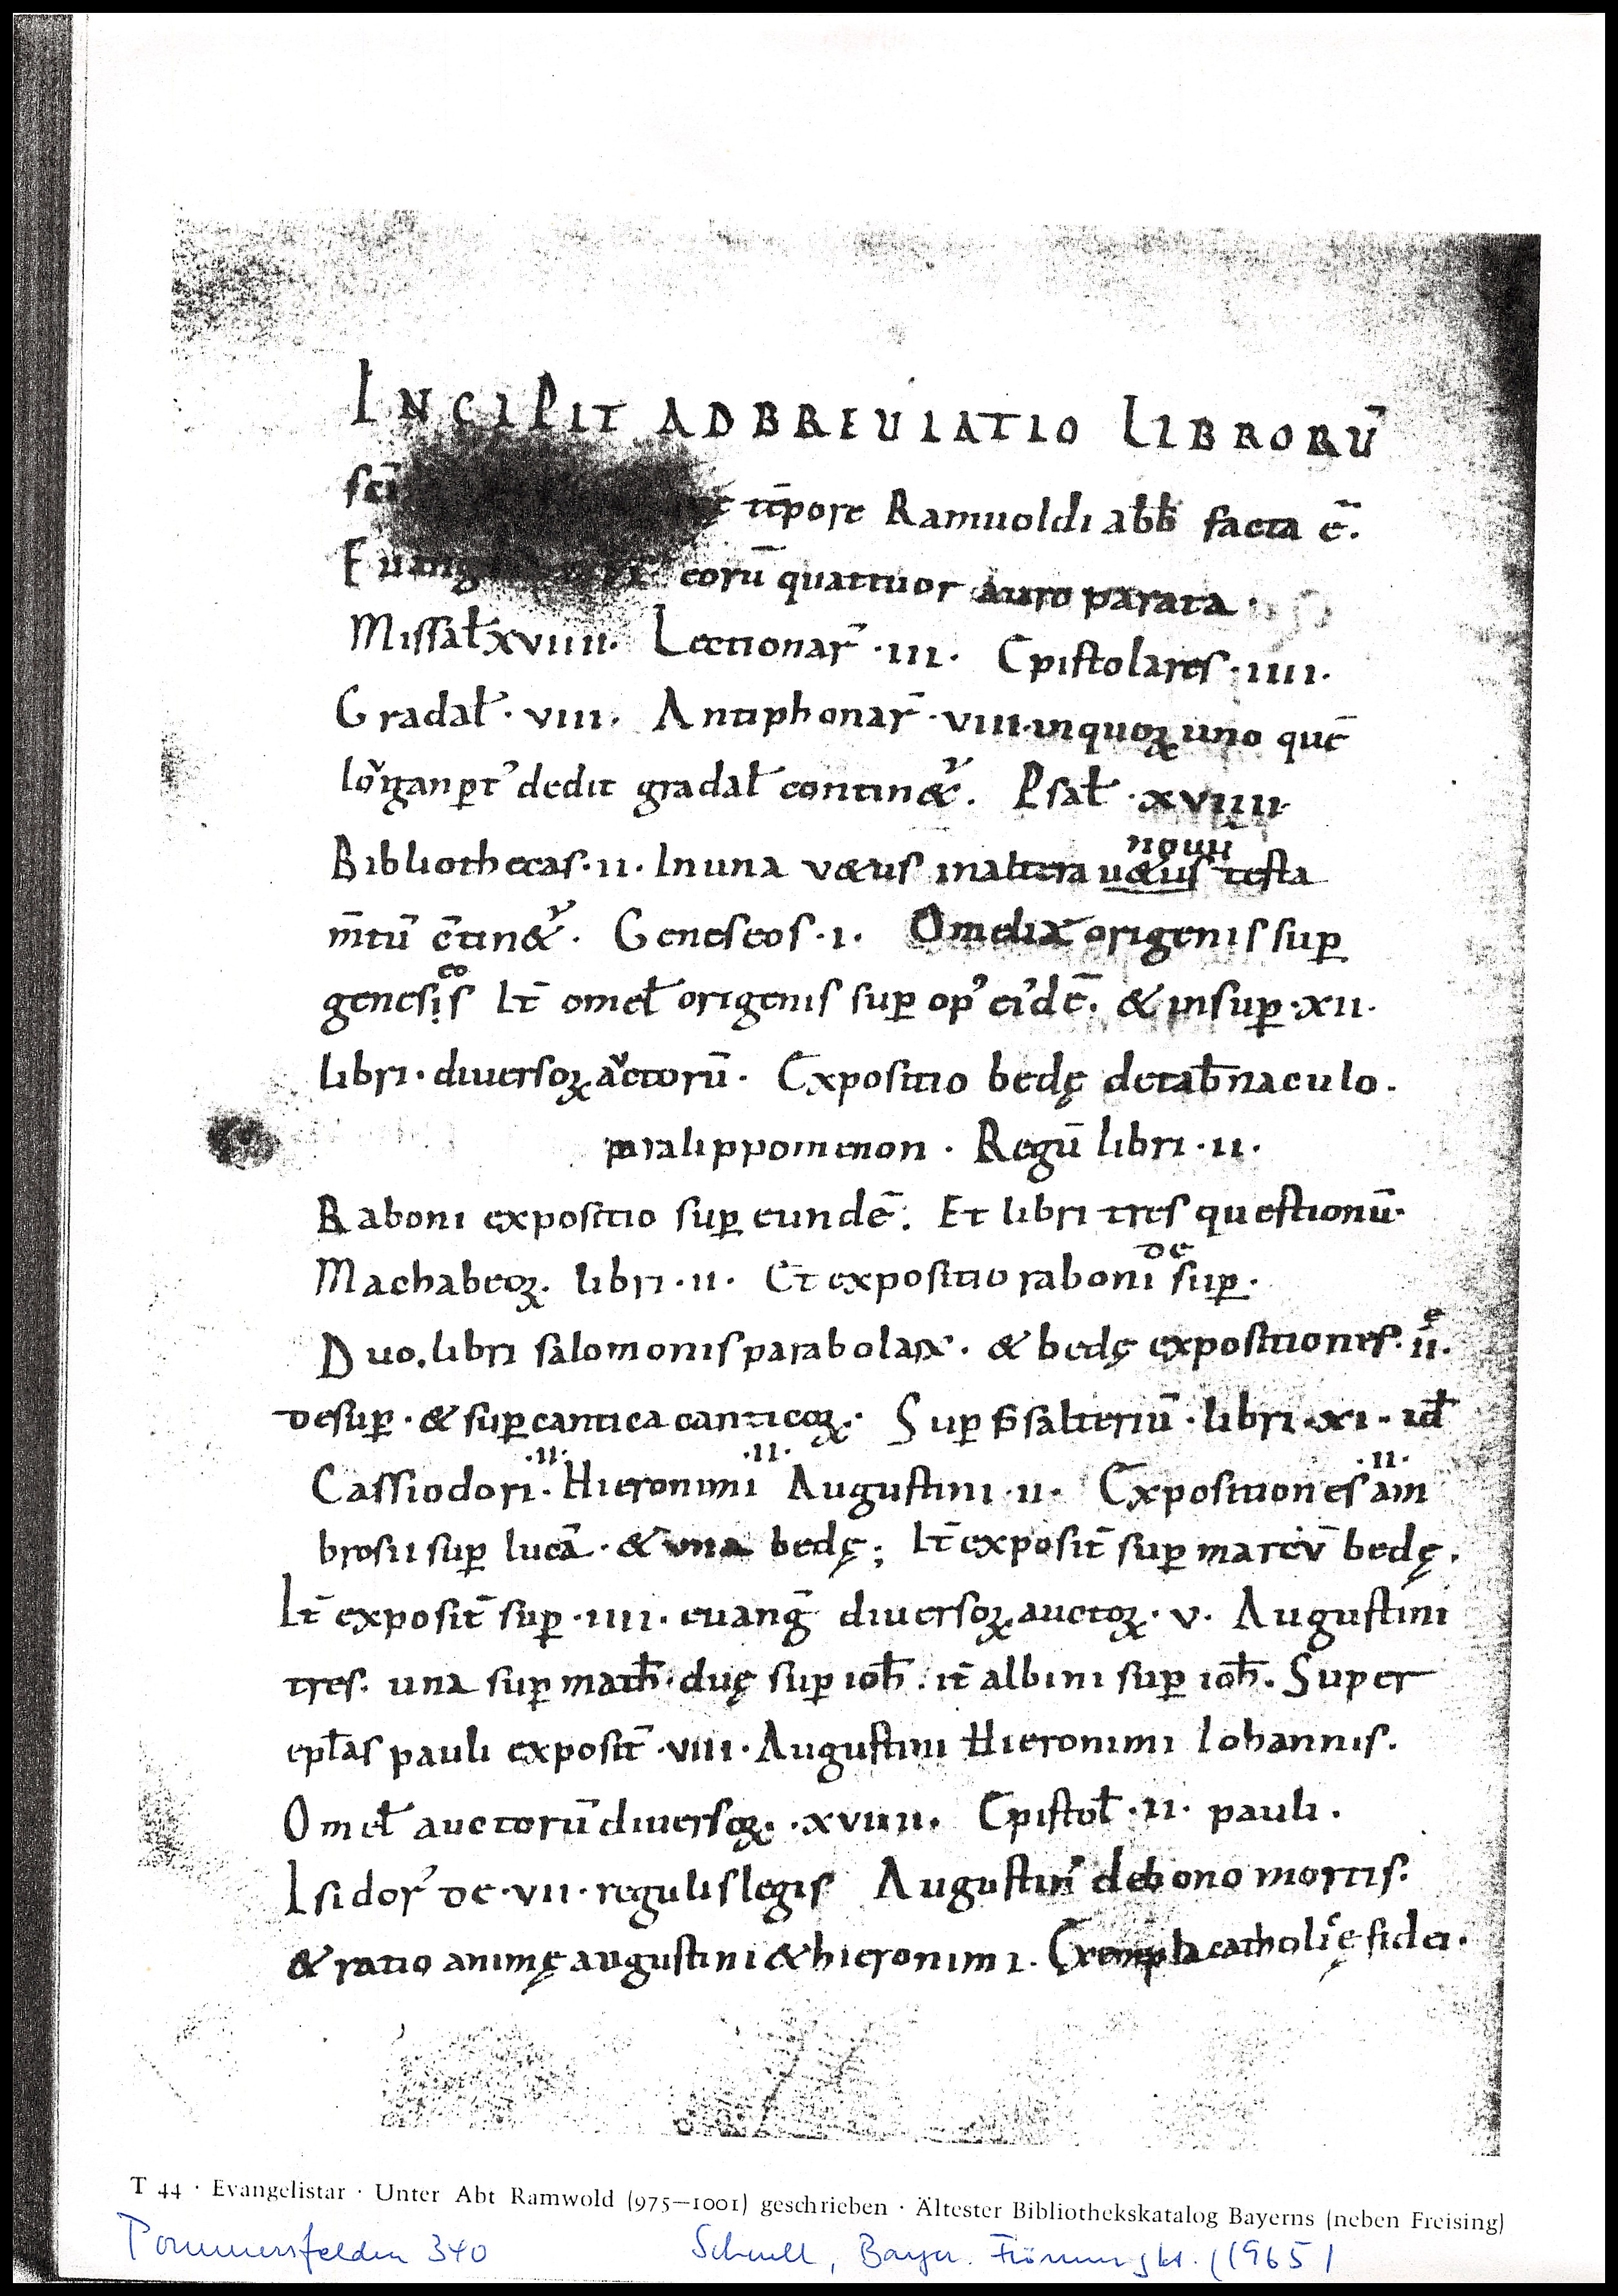 INCIPIT ADBREUIATIO LIBRORŪ
sc̄i t̄pore Ramuoldi abb̄ facta ē.
eorū quattuor auro parata ·
Missal̄ xviiii. Lectionar̄ ·iii· Epistolares ·iiii·
Gradal̄ · viii. Antiphonar̄ · viii · in quoꝝ uno quē
dedit gradal̄ contin&̓. Psal̄ · xviiii
nouū
Bibliothecas · ii · In una v&us in altera u&us testa
m̄tū c̄tin&̓ · Geneseos · i · Omeliaꝝ origenis suꝑ
eo
genesis It̄ omel̄ origenis suꝑ op᾿ ei᾿dē. & insuꝑ · xii ·
libri · diuersoꝝ auctorū · Expositio bedę de tab̄naculo ·
paralippomenon · Regū libri · ii ·
Raboni expositio suꝑ eundē. Et libri tres questionū ·
de
Machabeoꝝ. libri · ii · Et expositio raboni suꝑ ·
Duo. libri salomonis parabolaꝝ · & bedę expositiones · ii ·
desuꝑ · & suꝑ cantica canticoꝝ · Suꝑ psalteriū · libri · xi · id̄
·ii· ·ii· ·ii·
Cassiodori · Hieronimi Augustini · ii · Expositiones am
brosii suꝑ lucā · & una bedę; It̄ exposit̄ suꝑ marcū bedę.
It̄ exposit̄ suꝑ · iiii · euanḡ diuersoꝝ auctoꝝ · v · Augustini
tres. una suꝑ math̄ · duę suꝑ ioh̄. it̄ albini suꝑ ioh̄. Super
epl̄as pauli exposit̄ · viii · Augustini Hieronimi Iohannis.
Omel̄ auctorū diuersoꝝ. · xviiii · Epistol̄ · ii · pauli .
Isidor᾿ de · vii · regulis legis Augustin᾿ de bono mortis.
& ratio animę augustini & hieronimi. Exempla catholicę fidei ·
T 44 · Evangelistar · Unter Abt Ramwold (975—1001) geschrieben · Ältester Bibliothekskatalog Bayerns (neben Freising)
Pommersfelden 340 Schnell, Bayer. Frömmigkt. (1965)